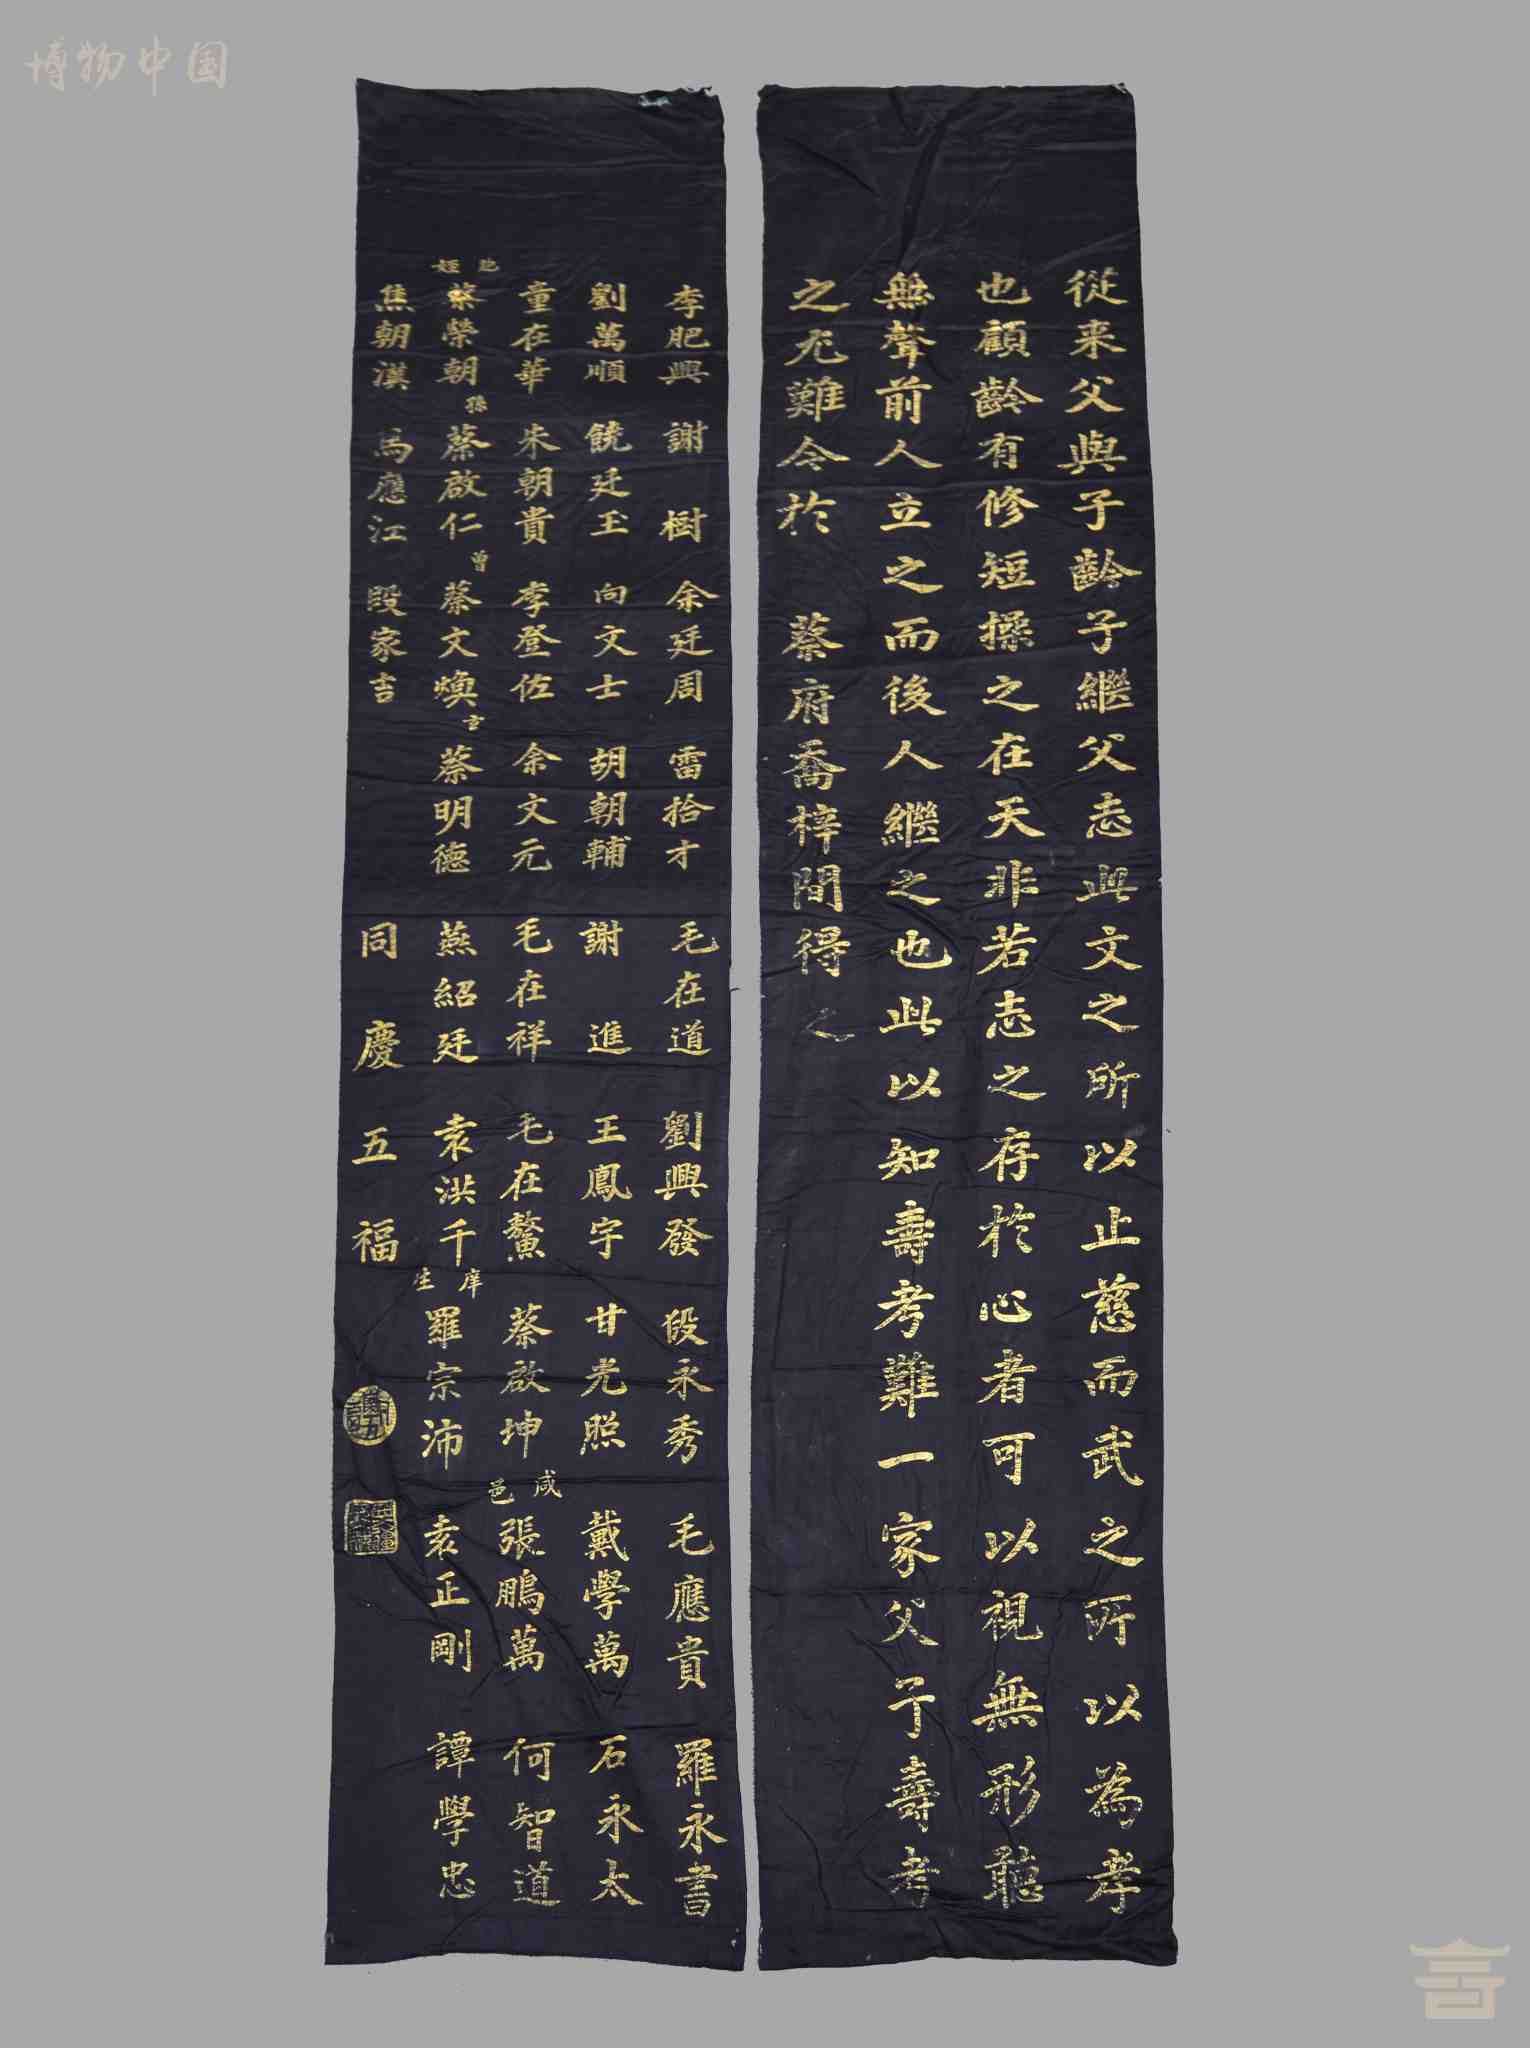 博物中国
從来父與子齡子繼父志此文之所以止慈而武之所以為孝
也顧齡有修短操之在天非若志之存於心者可以視無形聽
無聲前人立之而後人繼之也此以知壽考難一家父子壽考
之尤難今於 蔡府喬梓間得之
李肥興 謝樹 余廷周 雷拾才 毛在道 劉興發 段永秀 毛應貴 羅永書
劉萬順 饒廷玉 向文士 胡朝輔 謝進 王鳳宇 甘光照 戴學萬 石永太
童在華 朱朝貴 李登佐 余文元 毛在祥 毛在鰲 蔡啟坤 咸邑 張鵬萬 何智道
姪 蔡榮朝 孫 蔡啟仁 曾 蔡文煥 玄 蔡明德 燕紹廷 袁洪千 庠生 羅宗沛 袁正剛 譚學忠
焦朝漢 馬應江 段家吉 同慶五福